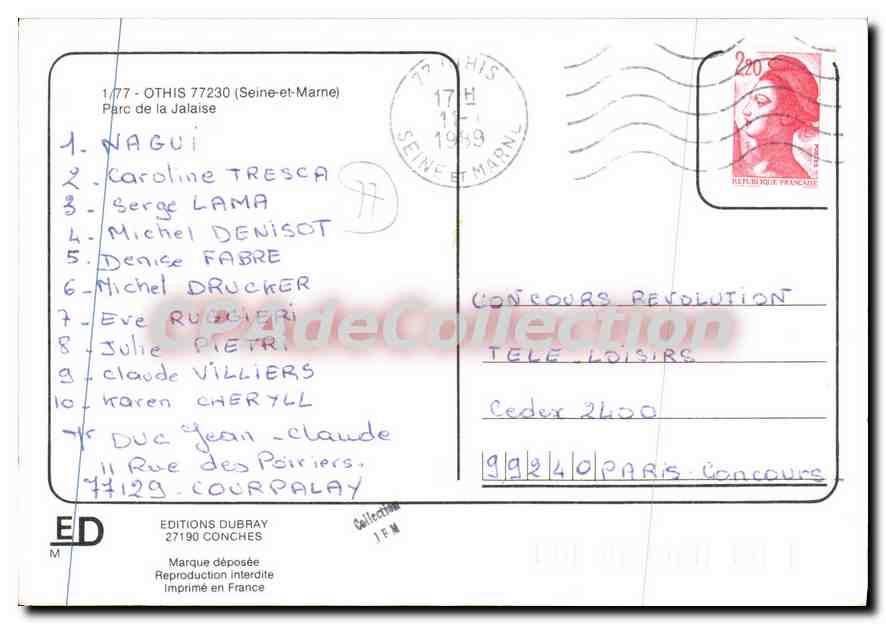 1/77 - OTHIS 77230 (Seine-et-Marne)
Parc de la Jalaise
1. NAGUI
2. Caroline TRESCA
3. Serge LAMA
4. Michel DENISOT
5. Denise FABRE
6. Michel DRUCKER
7. Eve RUGGIERI
8. Julie PIETRI
9. Claude VILLIERS
10. Karen CHERYLL
DUC Jean-Claude
11 Rue des Poiriers.
77129. COURPALAY
77
77 OTHIS
17 H
1989
SEINE ET MARNE
2,20
POSTES
REPUBLIQUE FRANÇAISE
CONCOURS REVOLUTION
TELE-LOISIRS
Cedex 2400
99240 PARIS-CONCOURS
CPAdeCollection
ED
M
EDITIONS DUBRAY
27190 CONCHES
Marque déposée
Reproduction interdite
Imprimé en France
Collection